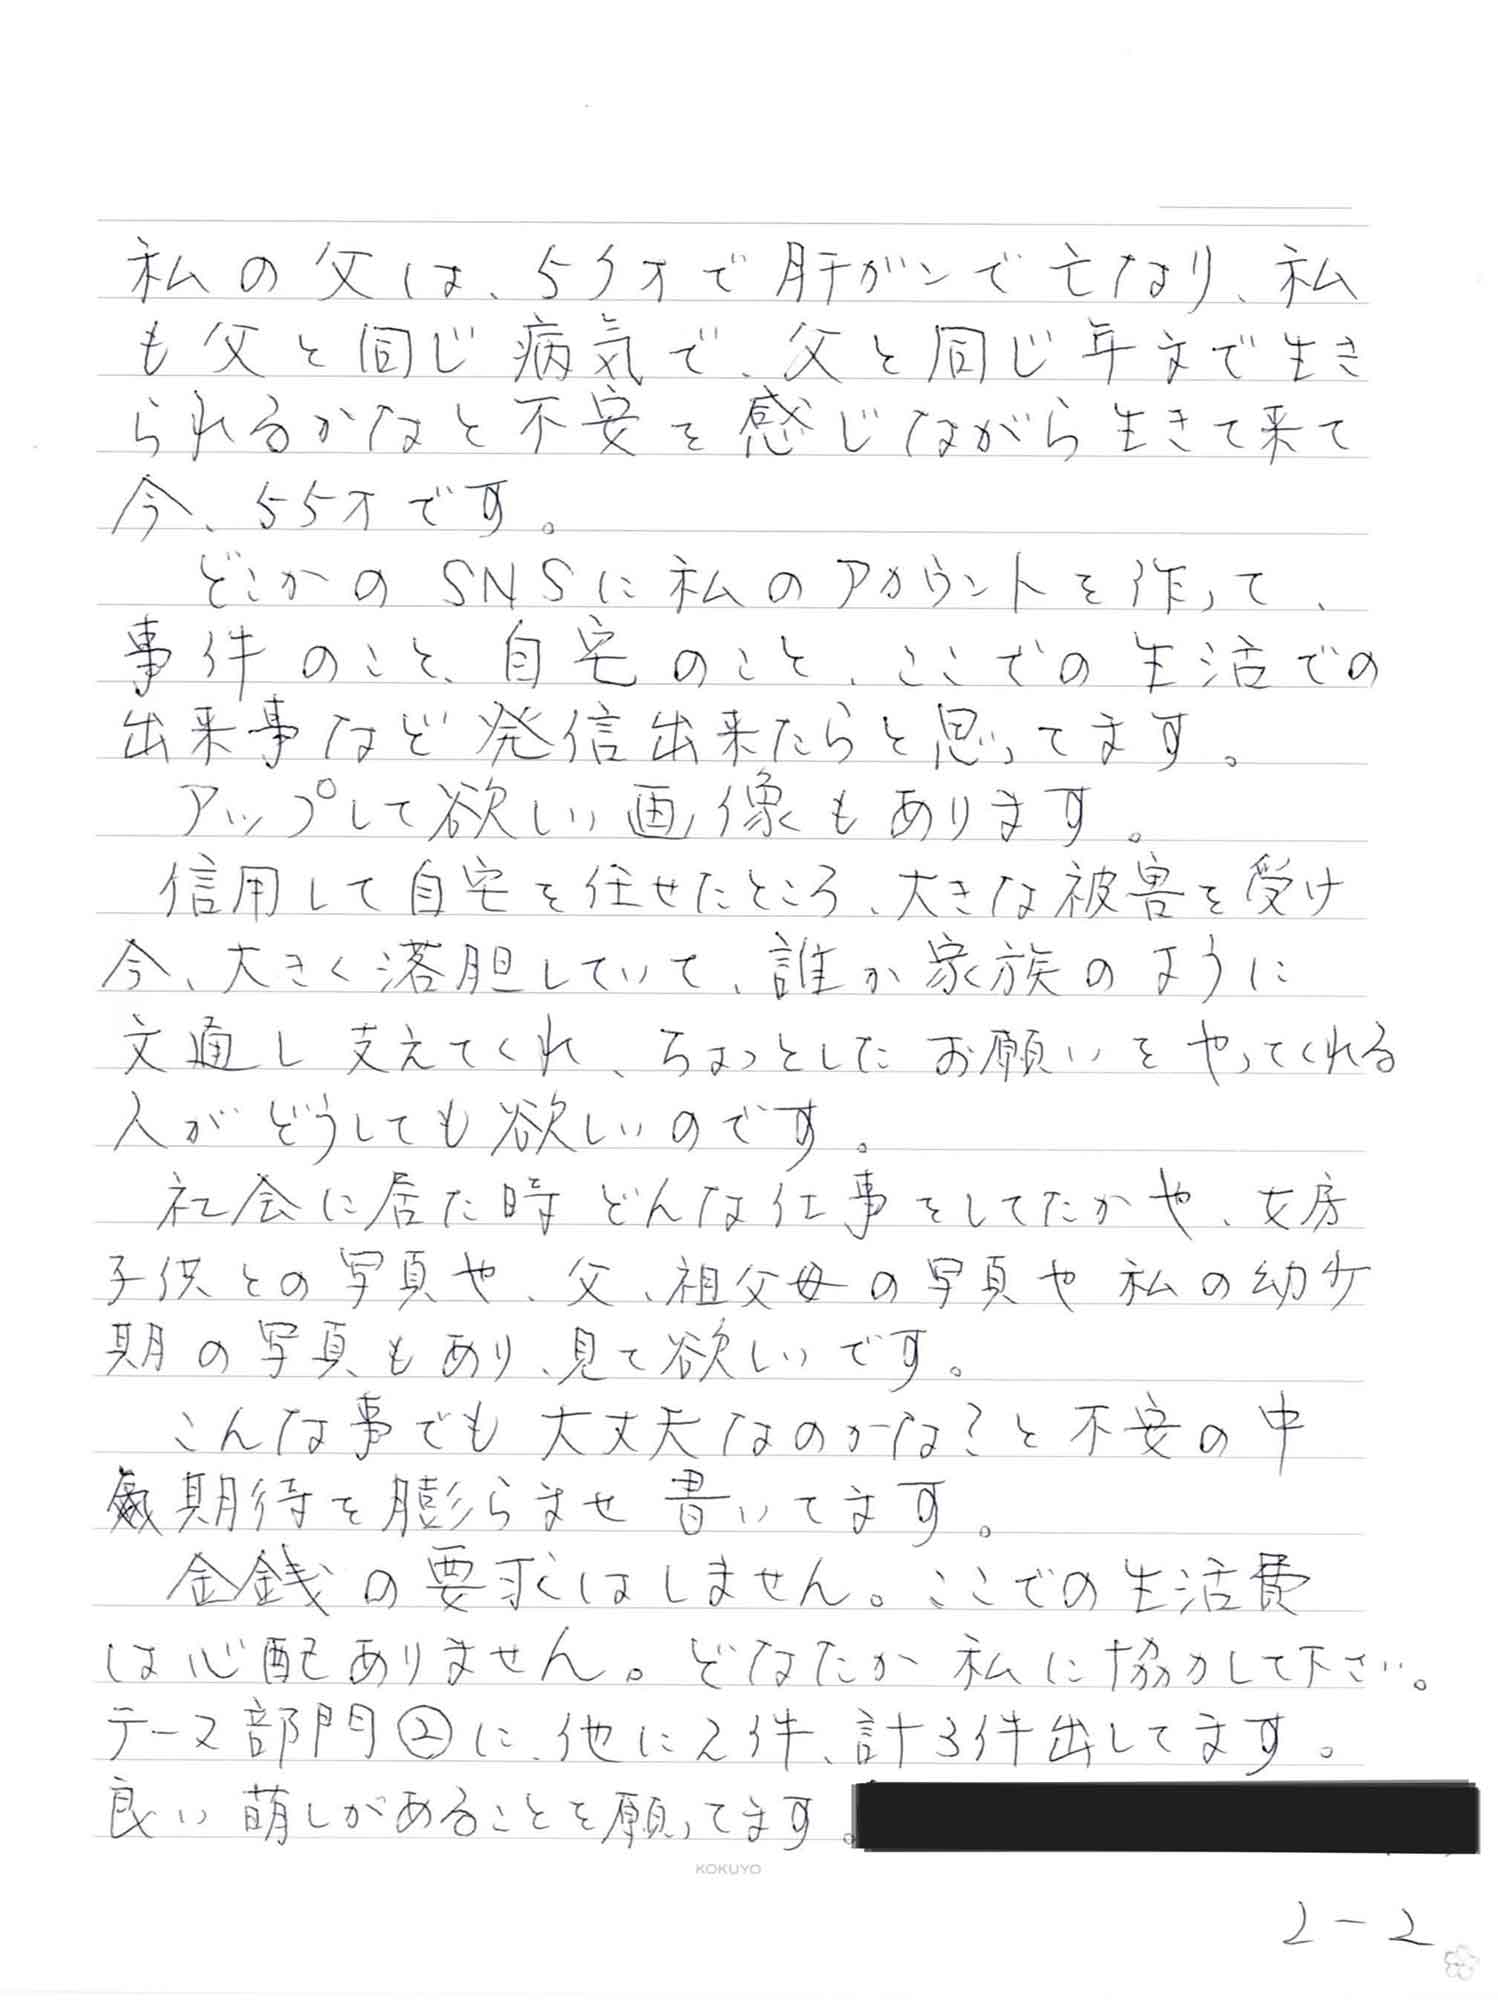 私の父は、55才で肝ガンで亡なり、私
も父と同じ病気で、父と同じ年まで生き
られるかなと不安を感じながら生きて来て
今、55才です。
どこかのSNSに私のアカウントを作って、
事件のこと、自宅のこと、ここでの生活での
出来事など発信出来たらと思ってます。
アップして欲しい画像もあります。
信用して自宅を任せたところ、大きな被害を受け
今、大きく落胆していて、誰か家族のように
文通し支えてくれ、ちょっとしたお願いをやってくれる
人がどうしても欲しいのです。
社会に居た時どんな仕事をしてたかや、女房
子供との写真や、父、祖父母の写真や私の幼少
期の写真もあり、見て欲しいです。
こんな事でも大丈夫なのかな?と不安の中
期待を膨らませ書いてます。
金銭の要求はしません。ここでの生活費
は心配ありません。どなたか私に協力して下さい。
テーマ部門②に、他に2件、計3件出してます。
良い萌しがあることを願ってます。
KOKUYO
2-2